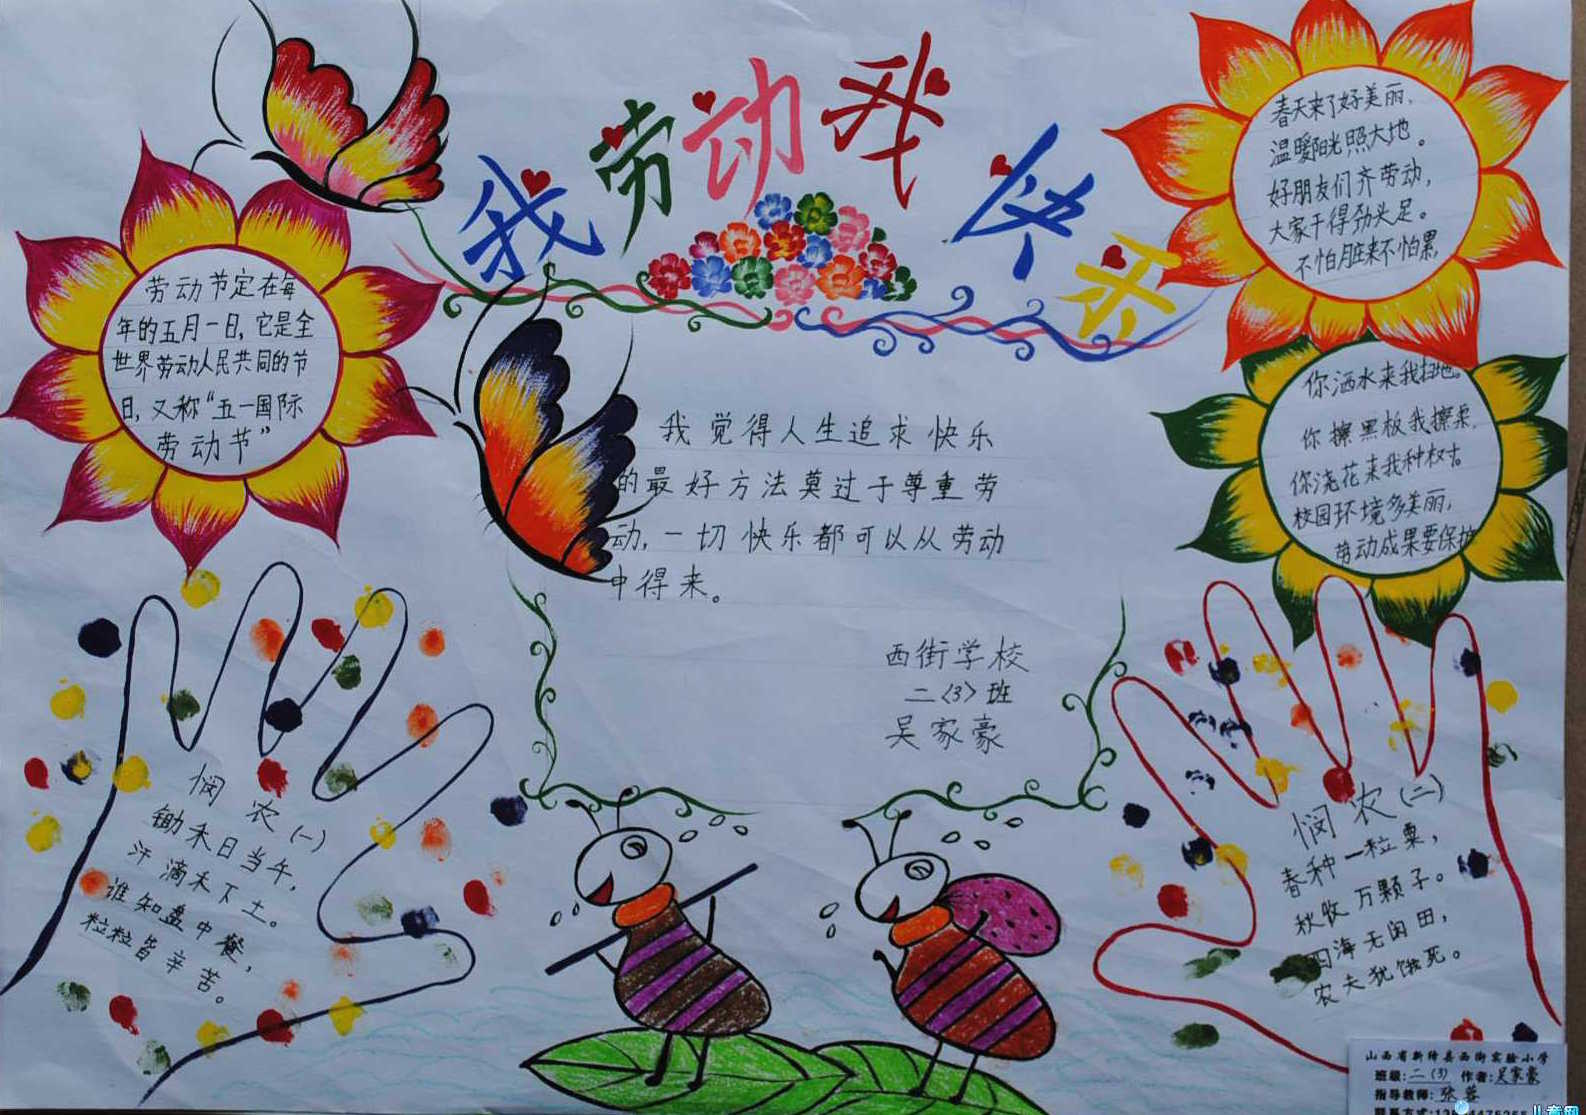 我劳动我快乐
劳动节定在每
年的五月一日,它是全
世界劳动人民共同的节
日,又称“五一国际
劳动节”
春天来了好美丽,
温暖阳光照大地。
好朋友们齐劳动,
大家干得劲头足。
不怕脏来不怕累,
你洒水来我扫地。
你擦黑板我擦桌,
你浇花来我种树。
校园环境多美丽,
劳动成果要保护
我觉得人生追求快乐
的最好方法莫过于尊重劳
动,一切快乐都可以从劳动
中得来。
西街学校
二〈3〉班
吴家豪
悯农(一)
锄禾日当午,
汗滴禾下土。
谁知盘中餐,
粒粒皆辛苦。
悯农(二)
春种一粒粟,
秋收万颗子。
四海无闲田,
农夫犹饿死。
山西省新绛县西街实验小学
班级:二(3) 作者:吴家豪
指导教师:张蓉
联系方式:
儿童网